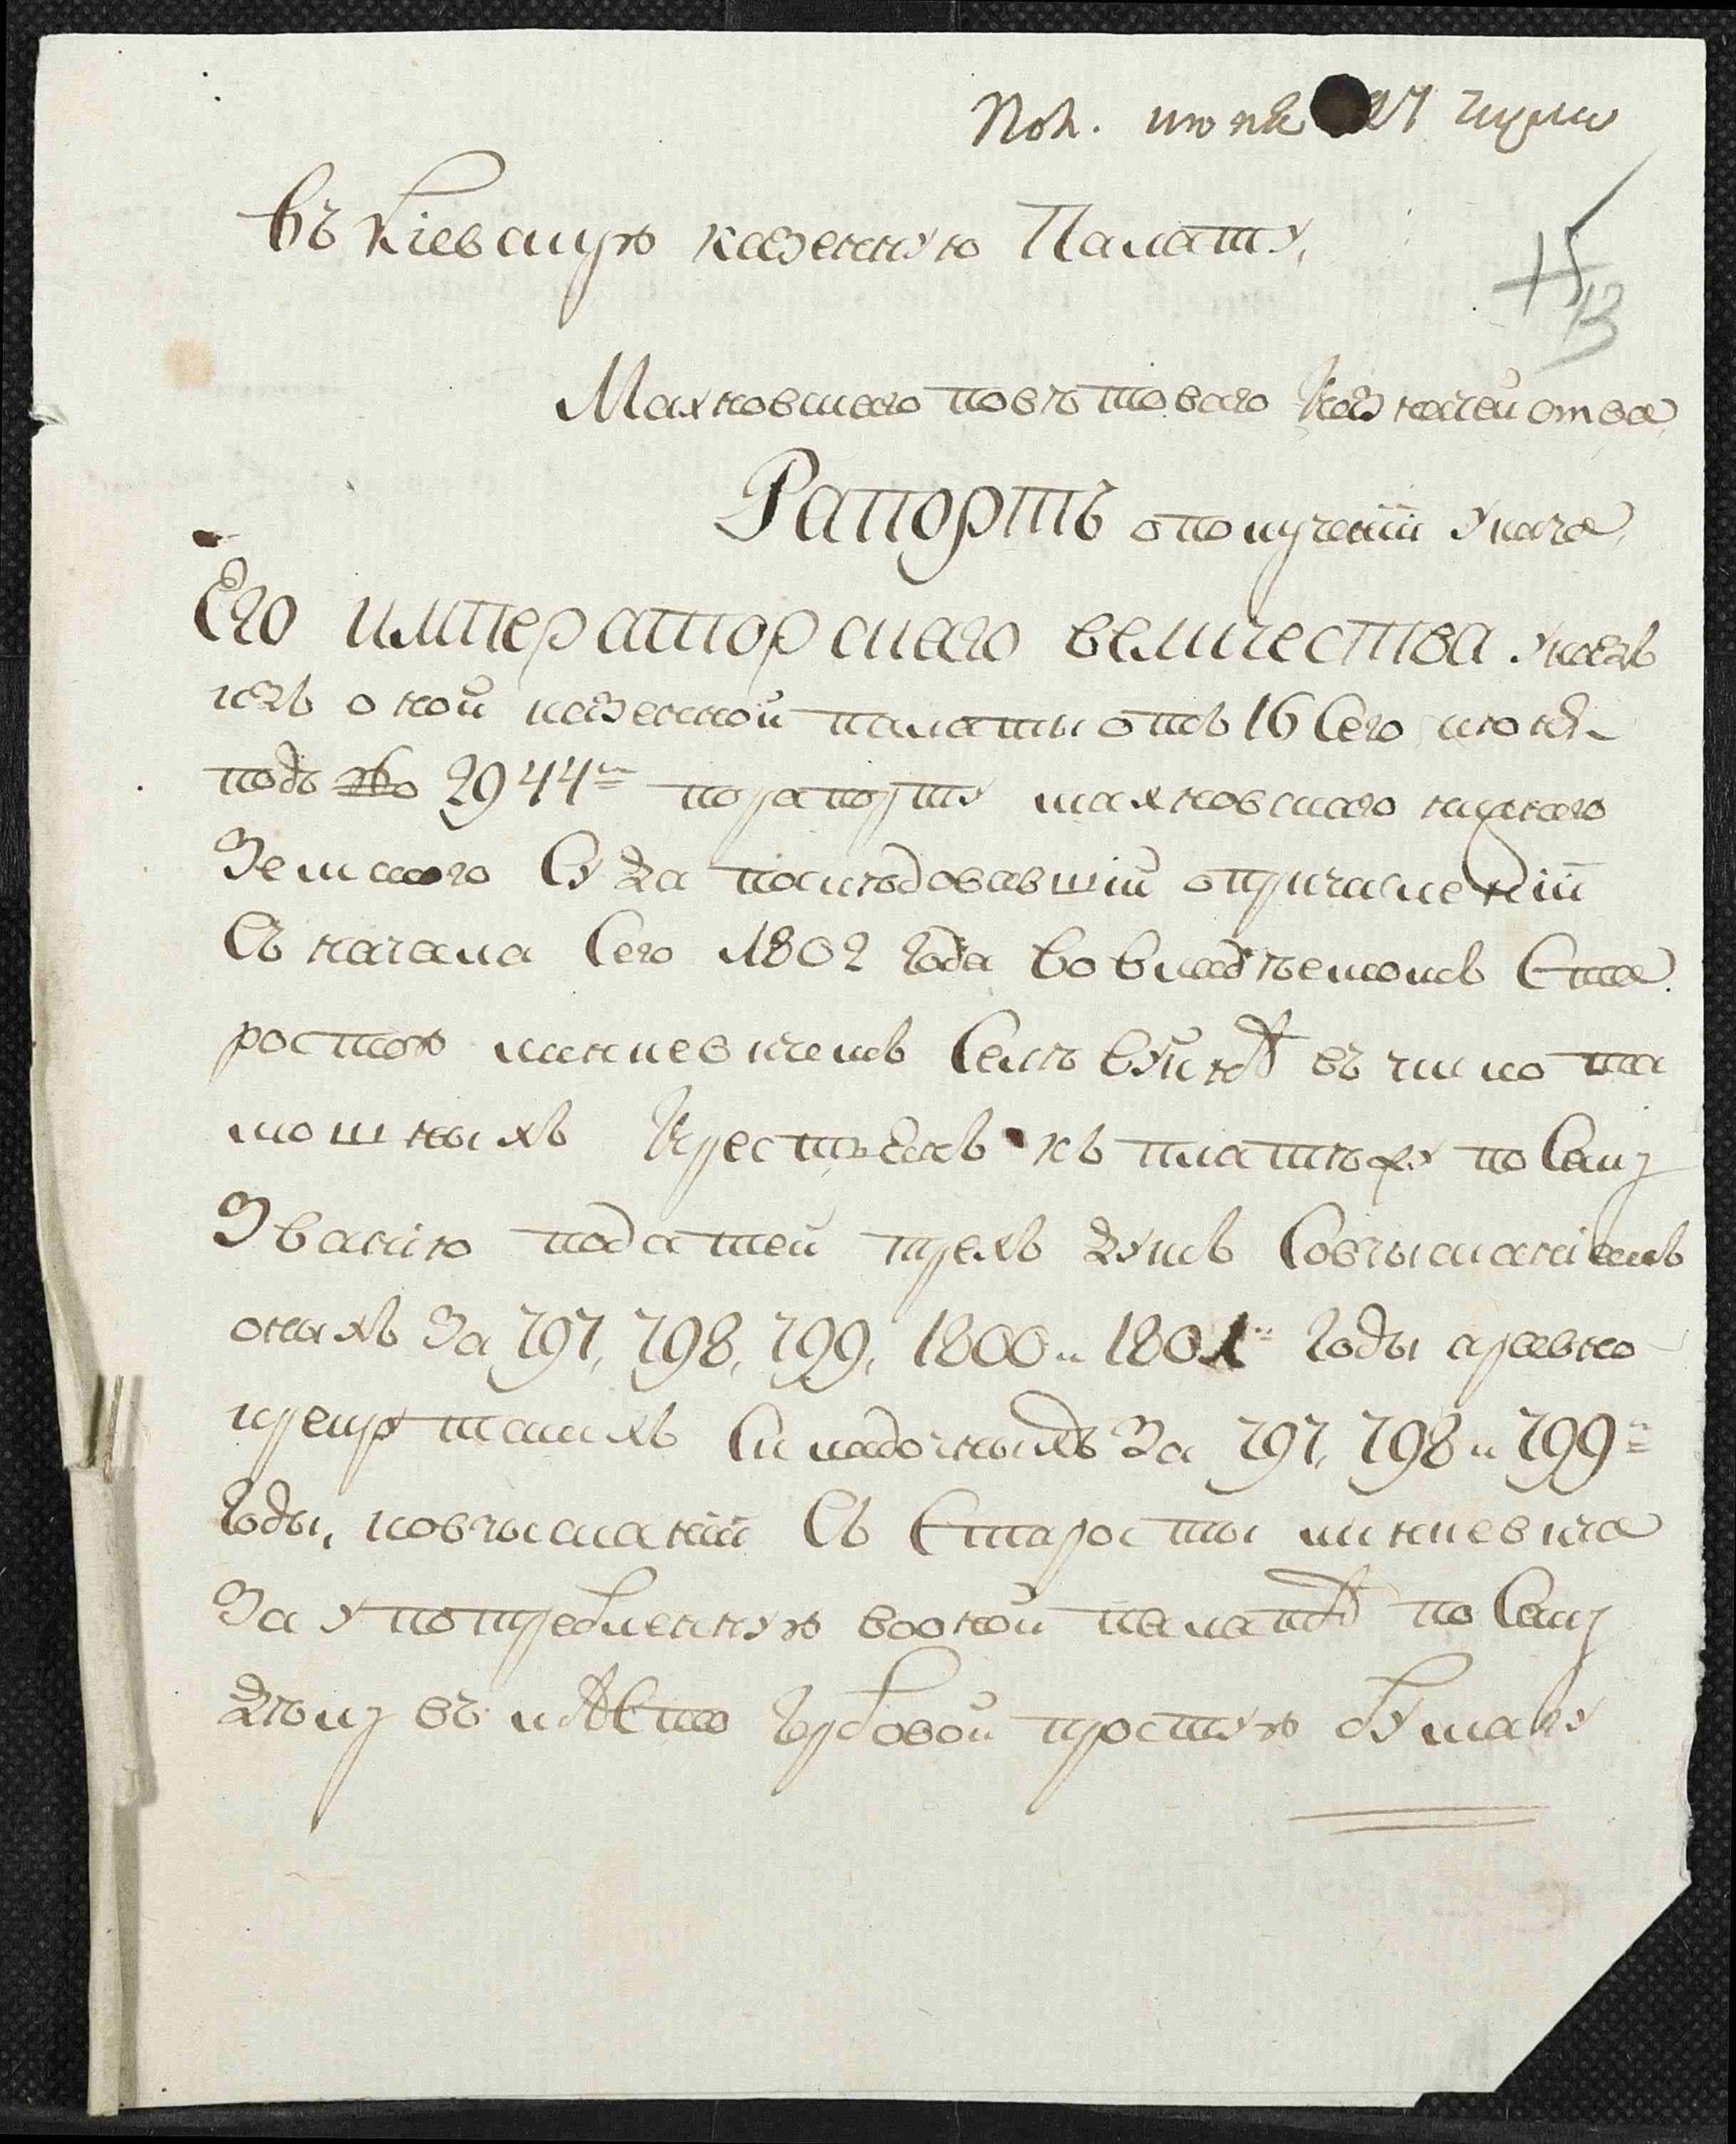 Пол. июня 27 числа
Въ Кіевскую казенную Палату,
15
13
Махновскаго повѣтоваго Казначейства
Рапортъ о получении указа,
Его императорскаго величества указъ
изъ оной казенной палаты отъ 16 сего июня
подъ № 2944м порапорту махновскаго нижняго
Земского Суда последовавший опричислении
Съ начала сего 1802 года во владѣемомъ Ста
ростою селѣ въ число та
мошныхъ крестьянъ къ платежу по сему
Званию податей трехъ душъ совзысканиемъ
оныхъ за 797, 798, 799, 1800 и 1801й годы аравно
рекрутскихъ складочныхъ за 797, 798 и 799й
годы, и овзыскании съ Старосты
За употребленную воной палатѣ по сему
дѣлу въ мѣсто гербовой простую бумагу